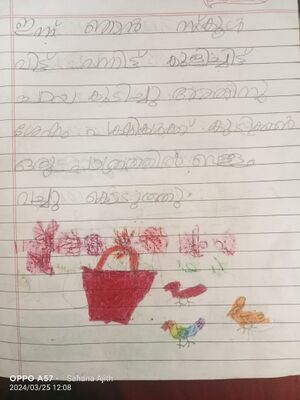 ഇന്ന് ഞാൻ സ്കൂൾ
വിട്ട് വന്നിട്ട് കുളിച്ചിട്ട്
ചായ കുടിച്ചു അതിനു
ശേഷം പക്ഷികൾക്ക് കുടിക്കാൻ
ഒരു പാത്രത്തിൽ വെള്ളം
വച്ചു കൊടുത്തു.
OPPO A57 Sahana Ajith
2024/03/25 12:08